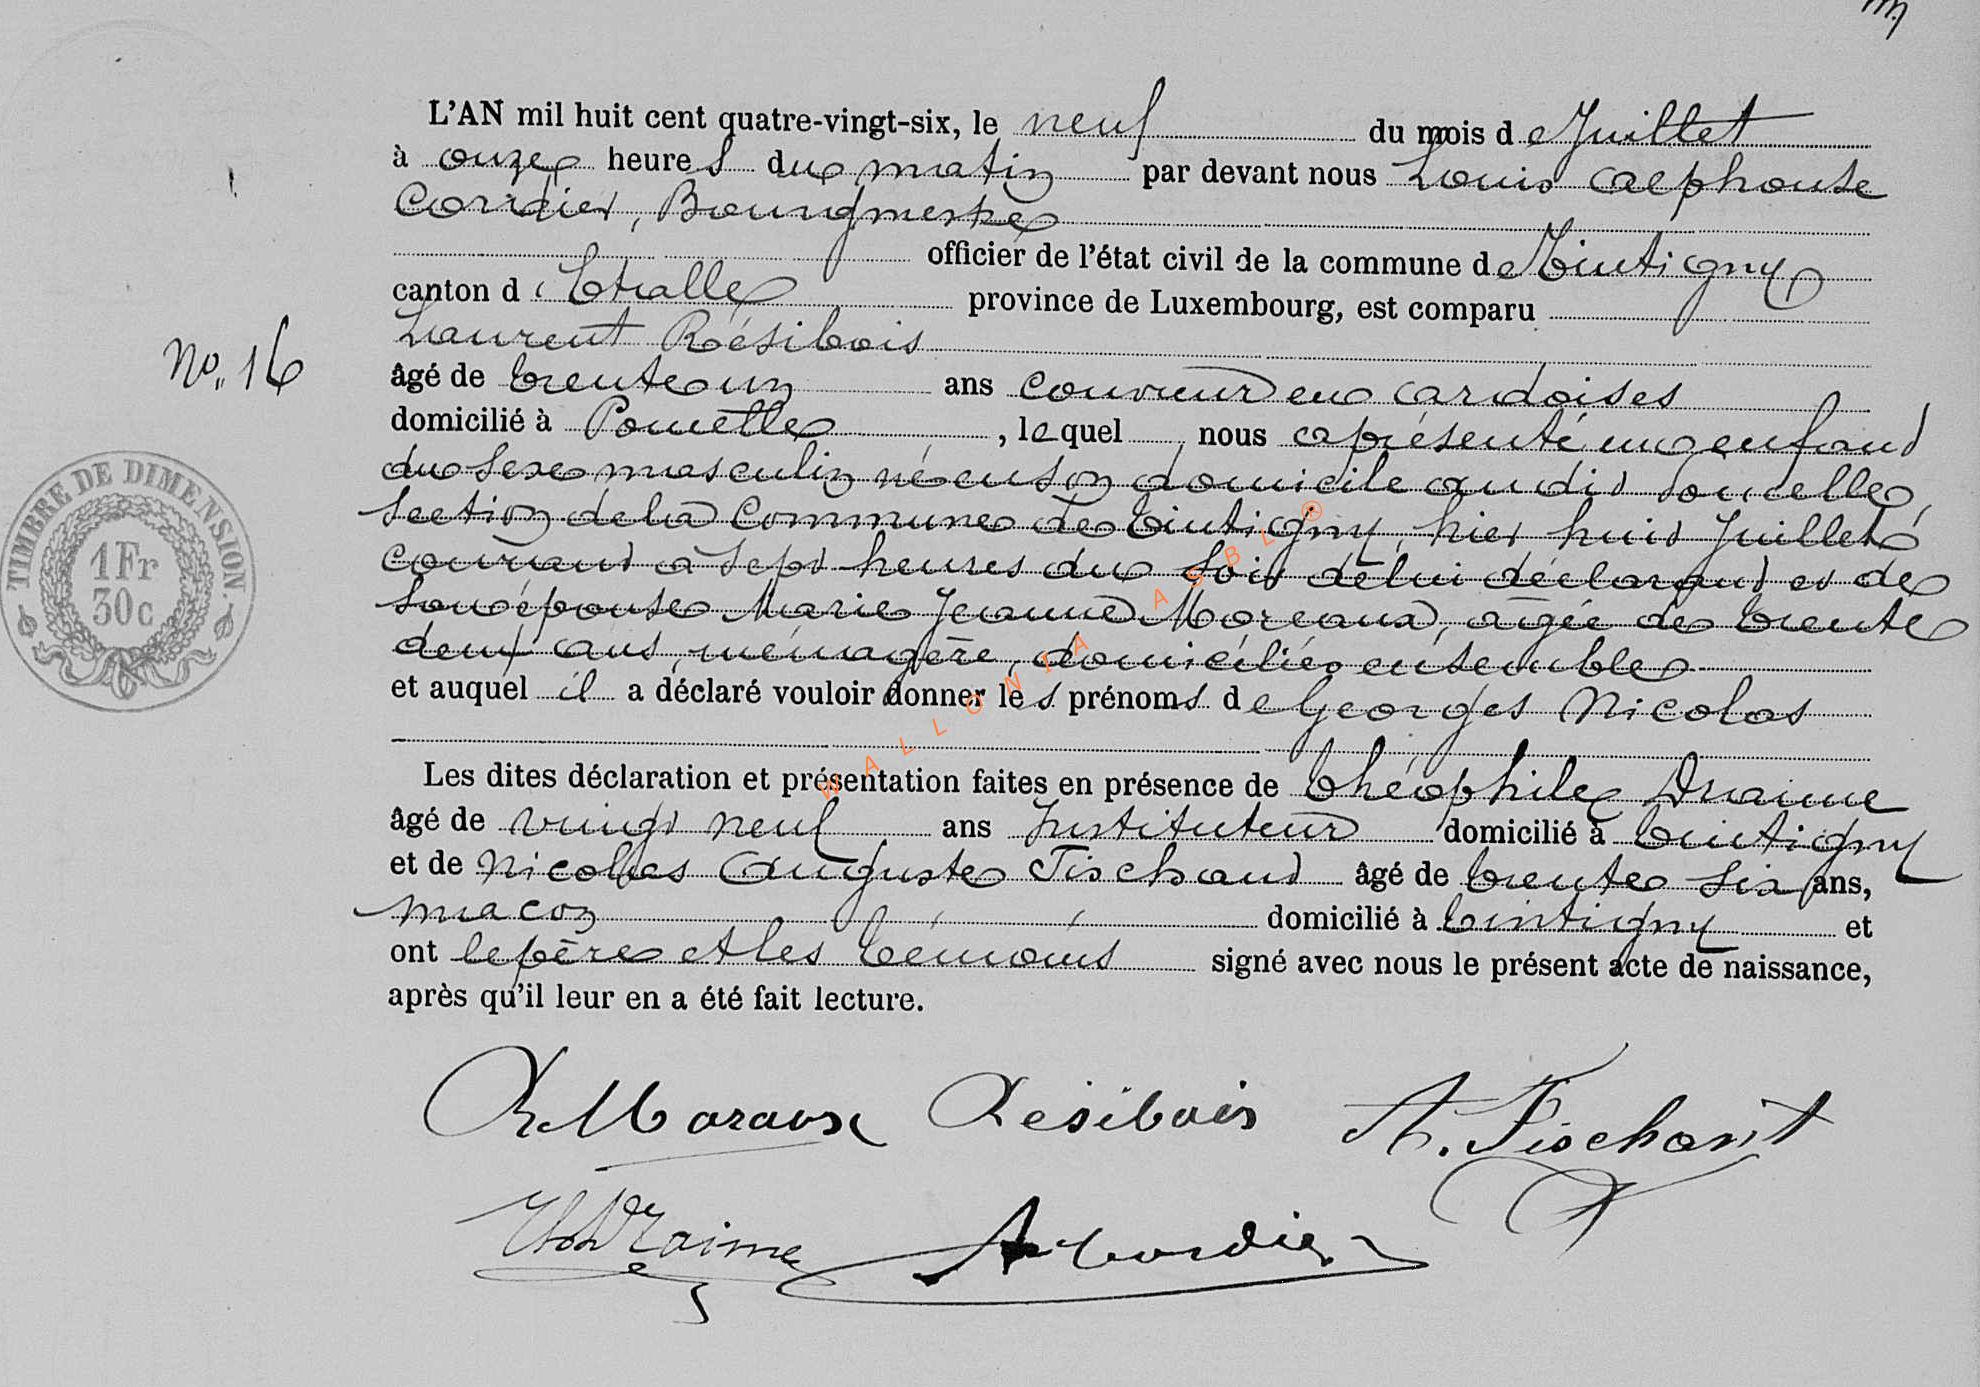 L'AN mil huit cent quatre-vingt-six, le neuf du mois de Juillet
à onze heures du matin par devant nous Louis Alphonse
Cordier, Bourgmestre
officier de l'état civil de la commune de Tintigny
canton d'Etalle province de Luxembourg, est comparu
Laurent Résibois
No. 16
âgé de trente un ans couvreur en ardoises
domicilié à , lequel nous a présenté un enfant
du sexe masculin né en son domicile au dit
section de la commune de Tintigny, hier huit Juillet
courant à sept heures du soir de lui déclarant et de
son épouse Marie Jeanne Moreaux, agée de trente
deux ans, ménagère, domiciliés ensemble
et auquel il a déclaré vouloir donner les prénoms de Georges Nicolas
Les dites déclaration et présentation faites en présence de Théophile Draime
âgé de vingt neuf ans Instituteur domicilié à Tintigny
et de Nicolas Auguste Fischant âgé de trente six ans,
macon domicilié à Tintigny et
ont le père et les témoins signé avec nous le présent acte de naissance,
après qu'il leur en a été fait lecture.
Résibois A. Fischant
Draime A Cordier
TIMBRE DE DIMENSION.
1 Fr
30c
WALLONIA ASBL ®